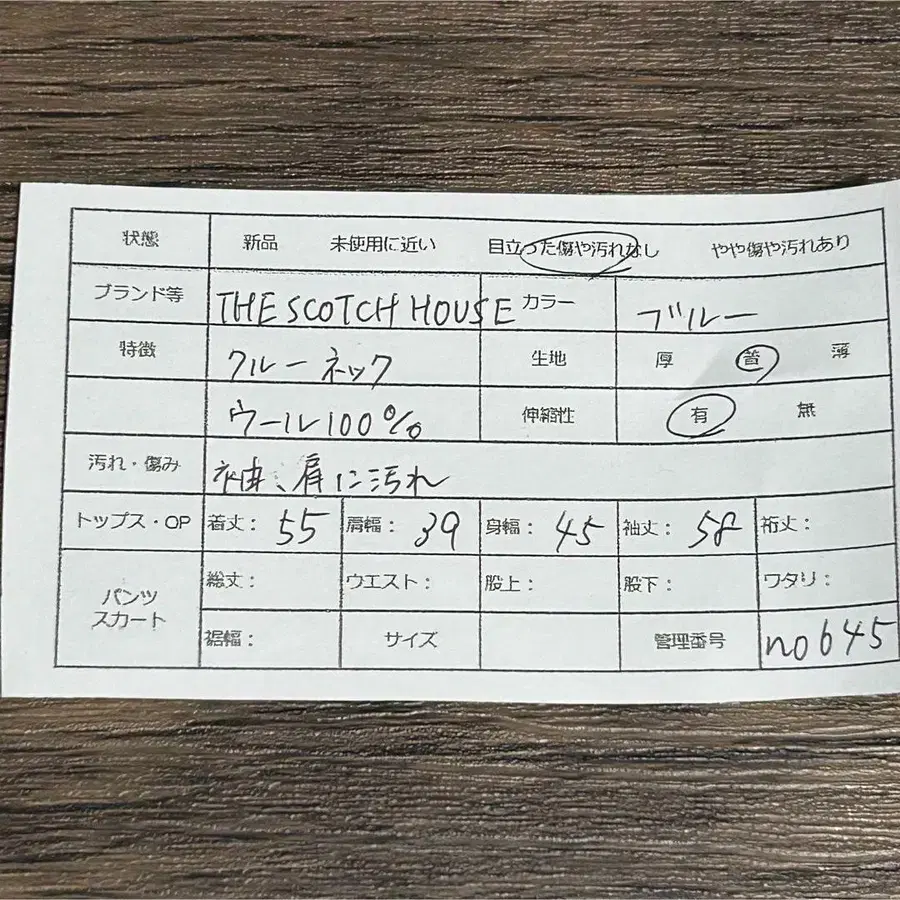 状態 新品 未使用に近い 目立った傷や汚れなし やや傷や汚れあり
ブランド等 THE SCOTCH HOUSE カラー ブルー
特徴 クルーネック 生地 厚 普 薄
ウール100% 伸縮性 有 無
汚れ・傷み 袖、肩に汚れ
トップス・OP 着丈: 55 肩幅: 39 身幅: 45 袖丈: 58 裄丈:
パンツ スカート 総丈: ウエスト: 股上: 股下: ワタリ:
裾幅: サイズ 管理番号 no645